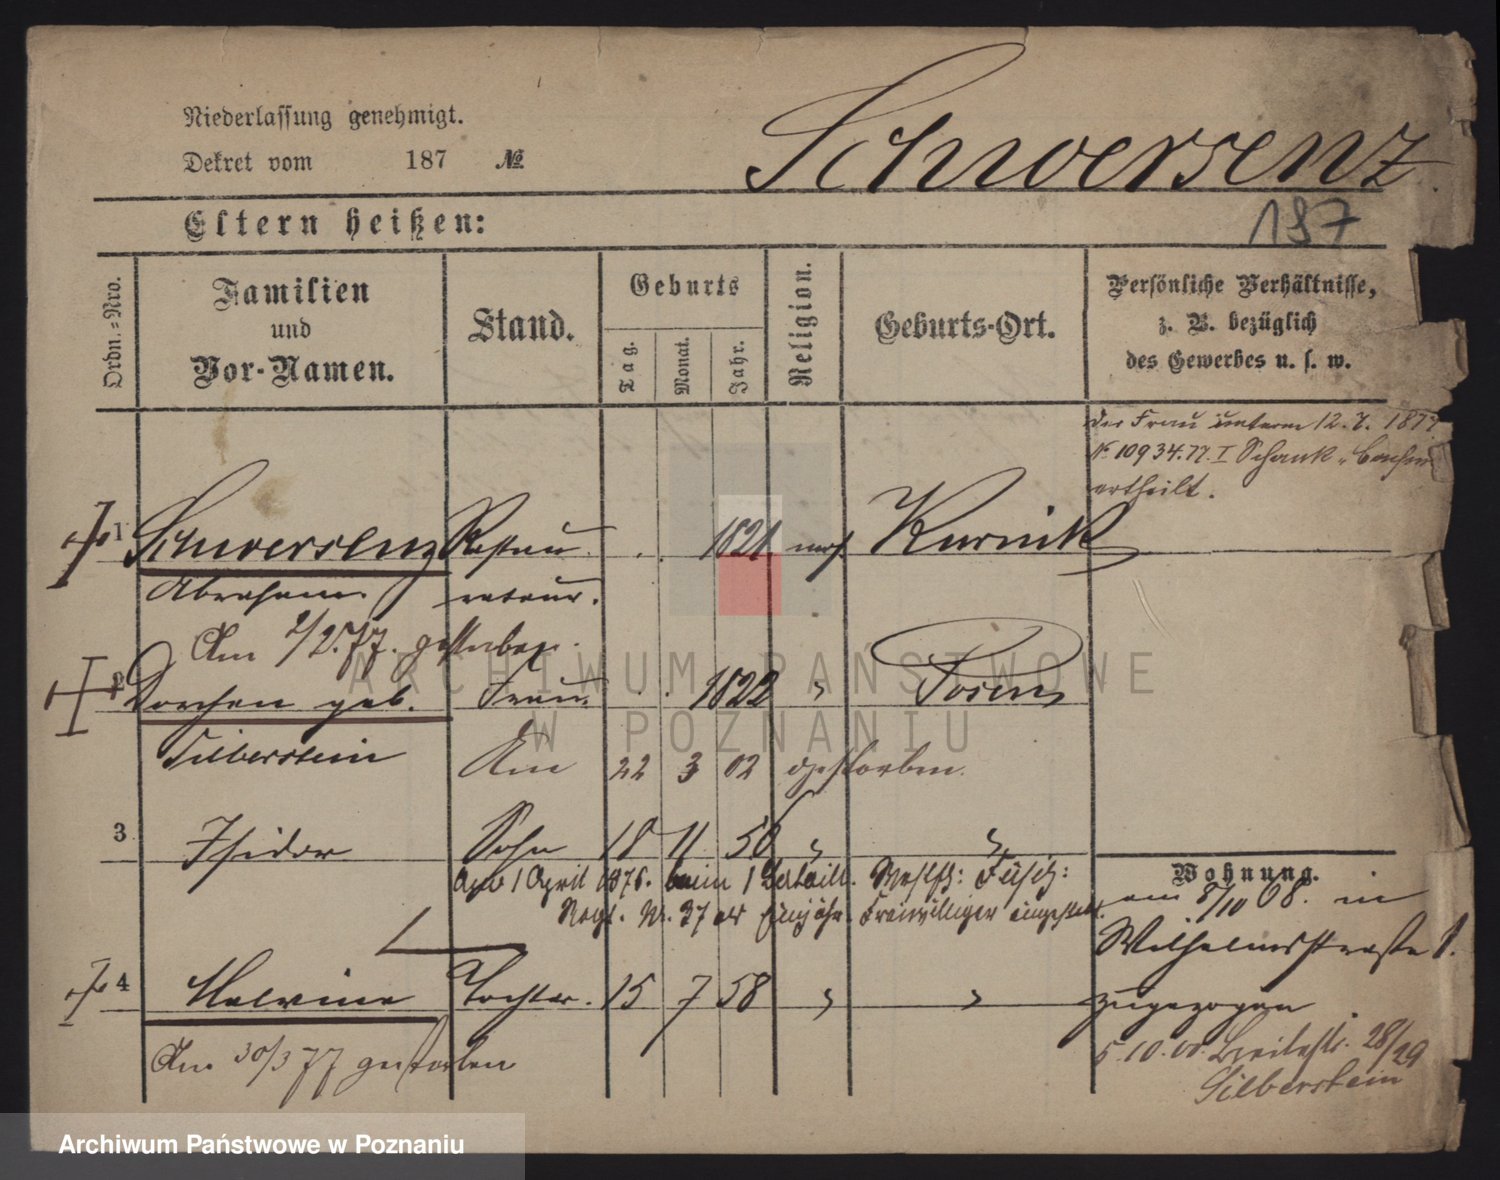 Niederlassung genehmigt.
Dekret vom 187 №
Schwersenz
187
Eltern heißen:
Ordn.-Nro.
Familien und Vor-Namen.
Stand.
Geburts
Tag. Monat. Jahr.
Religion.
Geburts-Ort.
Persönliche Verhältnisse,
z. B. bezüglich
des Gewerbes u. s. w.
Der Frau unterm 12.7. 1877
№ 10934.77. I Schank-
ertheilt.
1 Schwersenz Restau- 1821 mos. Kurnik
Abraham rateur.
Am 2/2.77. gestorben.
2 Dorchen geb. Frau 1822 " Posen
Silberstein Am 22 3 02 gestorben.
3 Isidor Sohn 18 11 56 " "
1 April 1876. beim 1 Bataill. Westf: Füsil:
Regt. Nr. 37 als Einjähr. Freiwilliger eingestellt.
Wohnung.
am 8/10 68. in
Wilhelmsstraße 1.
zugezogen
4 Malwine Tochter. 15 7 58 " "
Am 30/3 77 gestorben
5.10.01. Breitestr. 28/29
Silberstein
ARCHIWUM PAŃSTWOWE
W POZNANIU
Archiwum Państwowe w Poznaniu